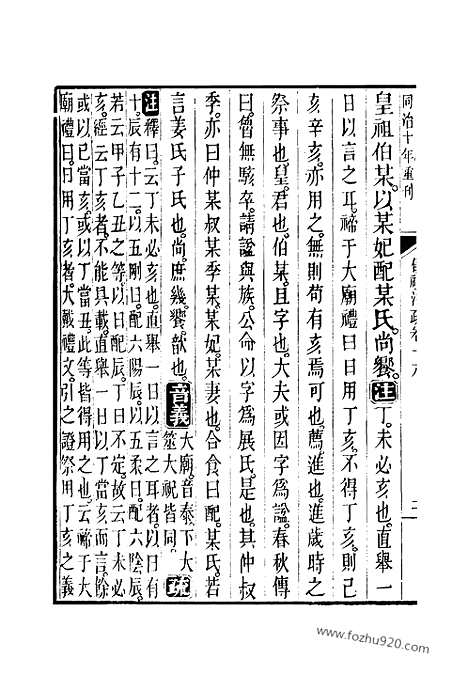 同治十年重刊
儀禮注疏卷十六 二
皇祖伯某。以某妃配某氏。尚饗。注丁。未必亥也。直舉一
日以言之耳。禘于大廟禮曰。日用丁亥。不得丁亥。則己
亥辛亥。亦用之。無則苟有亥焉可也。薦。進也。進歲時之
祭事也。皇。君也。伯某。且字也。大夫或因字爲謚。春秋傳
曰。魯無駭卒。請謚與族。公命以字爲展氏。是也。其仲叔
季。亦曰仲某叔某季某。某妃。某妻也。合食曰配。某氏。若
言姜氏子氏也。尚。庶幾。饗。歆也。音義大廟。音泰。下大
筮大祝皆同 疏
注釋曰。云丁未必亥也。直舉一日以言之耳者。以日有
十。辰有十二。以五剛日。配六陽辰。以五柔日。配六陰辰。
若云甲子乙丑之等。以日配辰。丁日不定。故云丁未必
亥。經云丁亥者。不能具載。直舉一日。以丁當亥而言。餘
或以己當亥。或以丁當丑。此等皆得用之也。云禘于大
廟禮曰。日用丁亥者。大戴禮文。引之證祭用丁亥之義
www.fozhu920.com